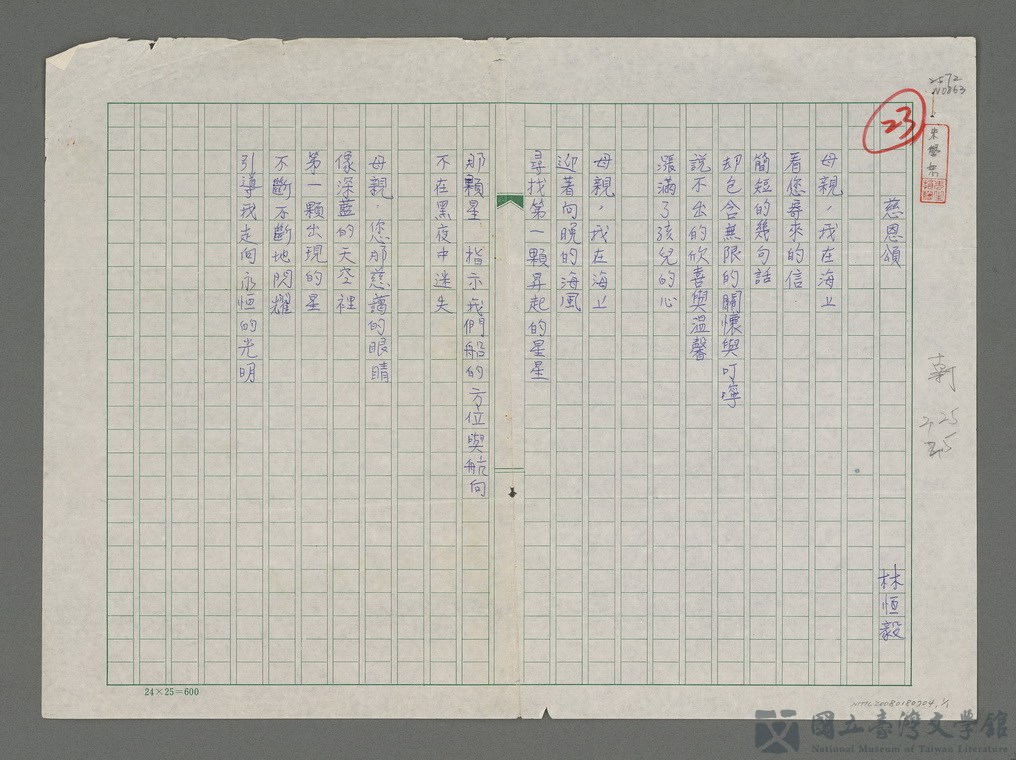 2572
N0863
23
慈恩頌
林恒毅
母親，我在海上
看您寄來的信
簡短的幾句話
却包含無限的關懷與叮嚀
說不出的欣喜與溫馨
漲滿了孩兒的心
母親，我在海上
迎著向晚的海風
尋找第一顆昇起的星星
那顆星，指示我們船的方位與航向
不在黑夜中迷失
母親，您那慈藹的眼睛
像深藍的天空裡
第一顆出現的星
不斷不斷地閃耀
引導我走向永恒的光明
24×25=600
NMTL20080180704, 1/1
國立臺灣文學館
National Museum of Taiwan Literature